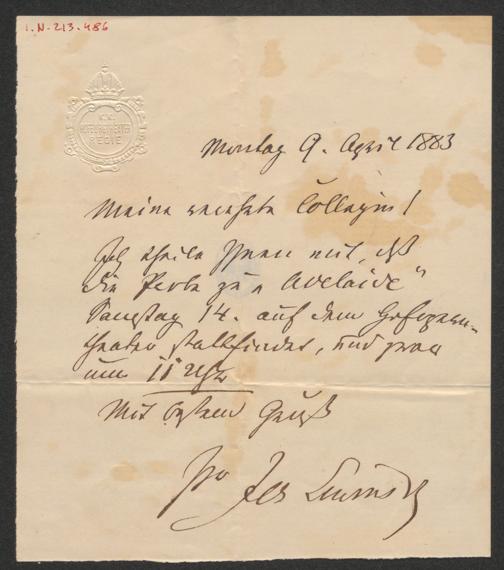 I.N-213.486
K.K.
HOFBURGTHEATER
REGIE
Montag 9. April 1883
Meine verehrte Collegin!
Ich theile Ihnen mit, daß
die Probe zu „Adelaide"
Samstag 14. auf dem Hofopern-
theater stattfindet, und zwar
um 11 Uhr
Mit bestem Gruß
Ihr Jos Lewinsky